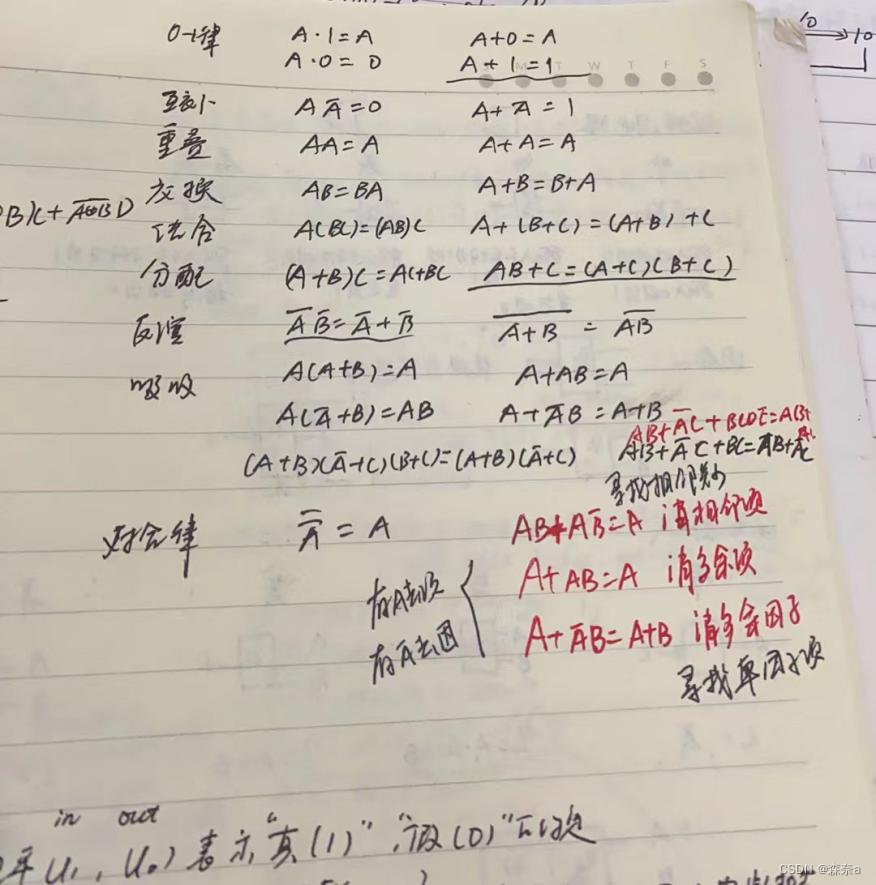 0-1律 A·1=A A+0=A
A·0=0 A+1=1
M T W T F S
互补 AA̅=0 A+A̅=1
重叠 AA=A A+A=A
交换 AB=BA A+B=B+A
结合 A(BC)=(AB)C A+(B+C)=(A+B)+C
分配 (A+B)C=AC+BC AB+C=(A+C)(B+C)
反演 A̅ B̅=A̅+B̅ \overline{A+B} = \overline{AB}
吸收 A(A+B)=A A+AB=A
A(A̅+B)=AB A+A̅B=A+B
AB+A̅C+BCDE=AB+
(A+B)(A̅+C)(B+C)=(A+B)(A̅+C) AB+A̅C+BC=AB+A̅C
寻找相邻
对合律 A̿=A AB+AB̅=A 消相邻项
有A去项 A+AB=A 消多余项
有A̅去因 A+A̅B=A+B 消多余因子
寻找单因子项
in out
U₁, U₀) 表示"真(1)","假(0)"
CSDN @森奈a